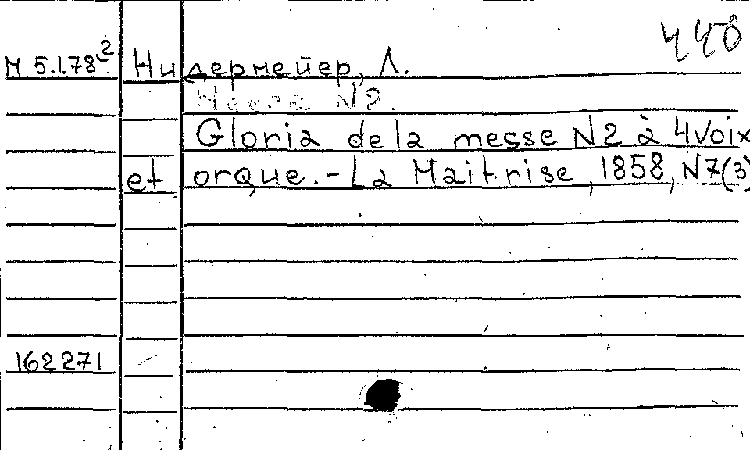 440
М 5.178² Нидермейер, Л.
Месса N2.
Gloria de la messe N2 à 4 voix
et orque.- La Maitrise, 1858, N7(3)
162271